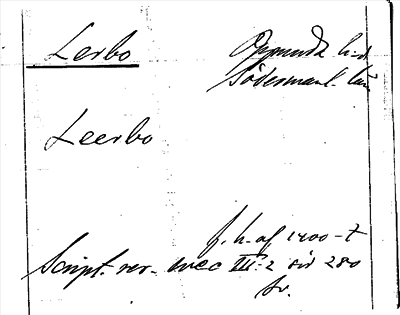 Lerbo
Oppunda h:d
Södermanl. län
Leerbo
f. h. af 1400-t
Script. rer. svec III:2 sid 280
kr.